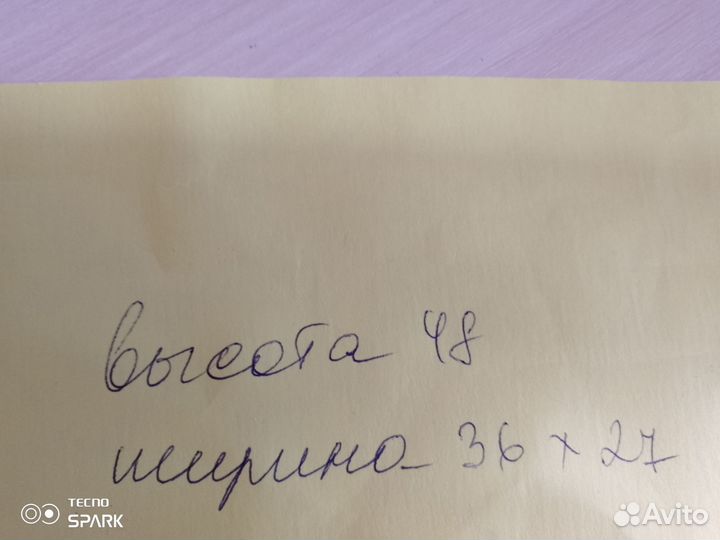 высота 48
ширина 36 x 27
TECNO
SPARK
Avito